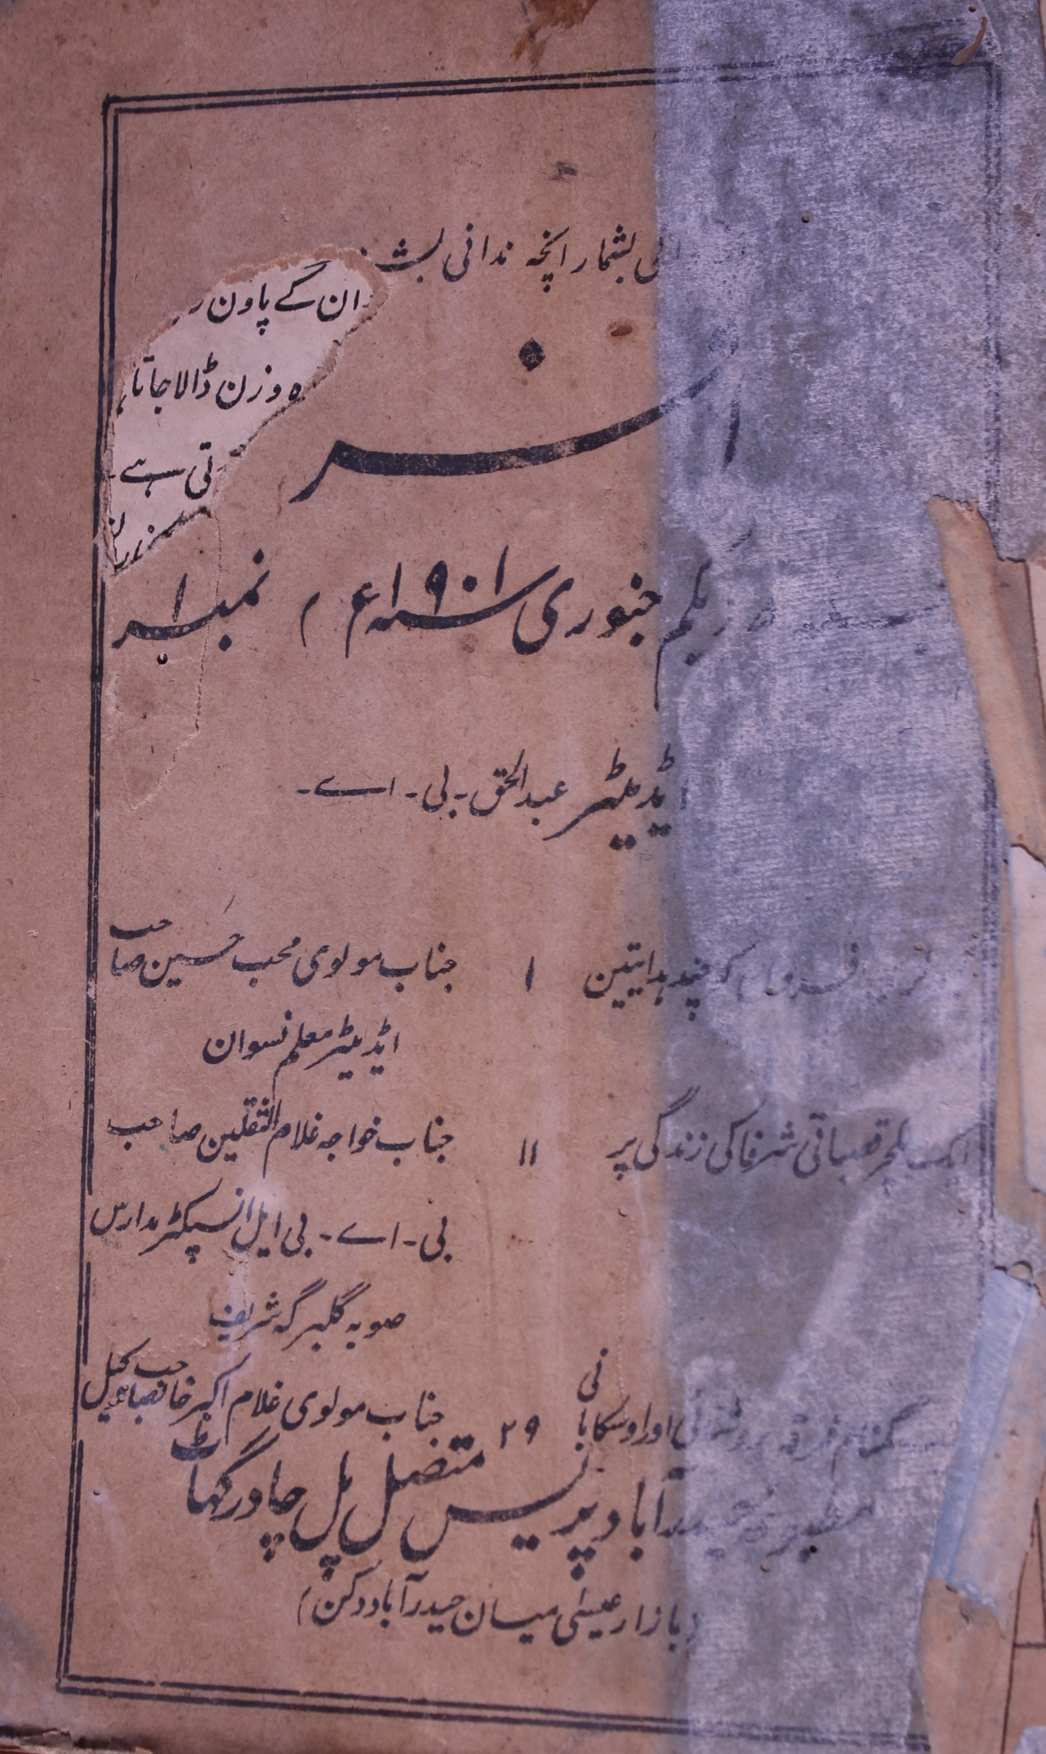 بشمار انچہ ندانی
ان گے پاون
وزن ڈالا جاتا
تی ہے۔
یکم جنوری سنہ ۱۹۰۱ء ) نمبر ۱
ایڈیٹر عبدالحق۔ بی۔ اے۔
کو چند ہدایتین ۱ جناب مولوی محب حسین صاحب
ایڈیٹر معلم نسوان
ایک لکچر قصباتی شرفا کی زندگی پر ۱۱ جناب خواجہ غلام الثقلین صاحب
بی۔ اے۔ بی ایل انسپکٹر مدارس
صوبہ گلبرگہ شریف
اور اوسکا بانی ۲۹ جناب مولوی غلام اکبر خانصاحب وکیل
حیدرآباد پریس متصل پل چادرگھاٹ
(بازار عیسی میان حیدرآباد دکن)